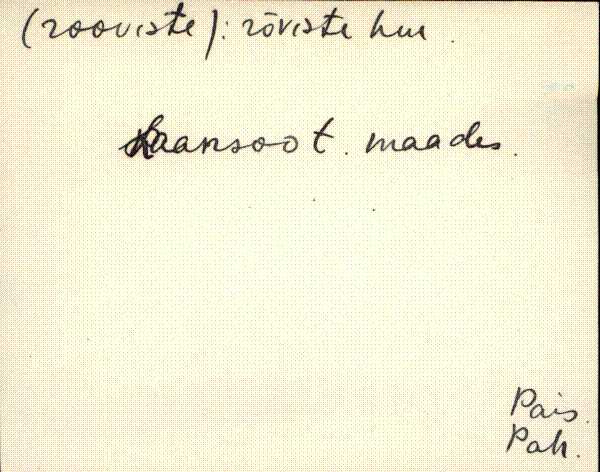 (rooviste): rōviste hue.
Raansoot. maades.
Pais.
Pah.